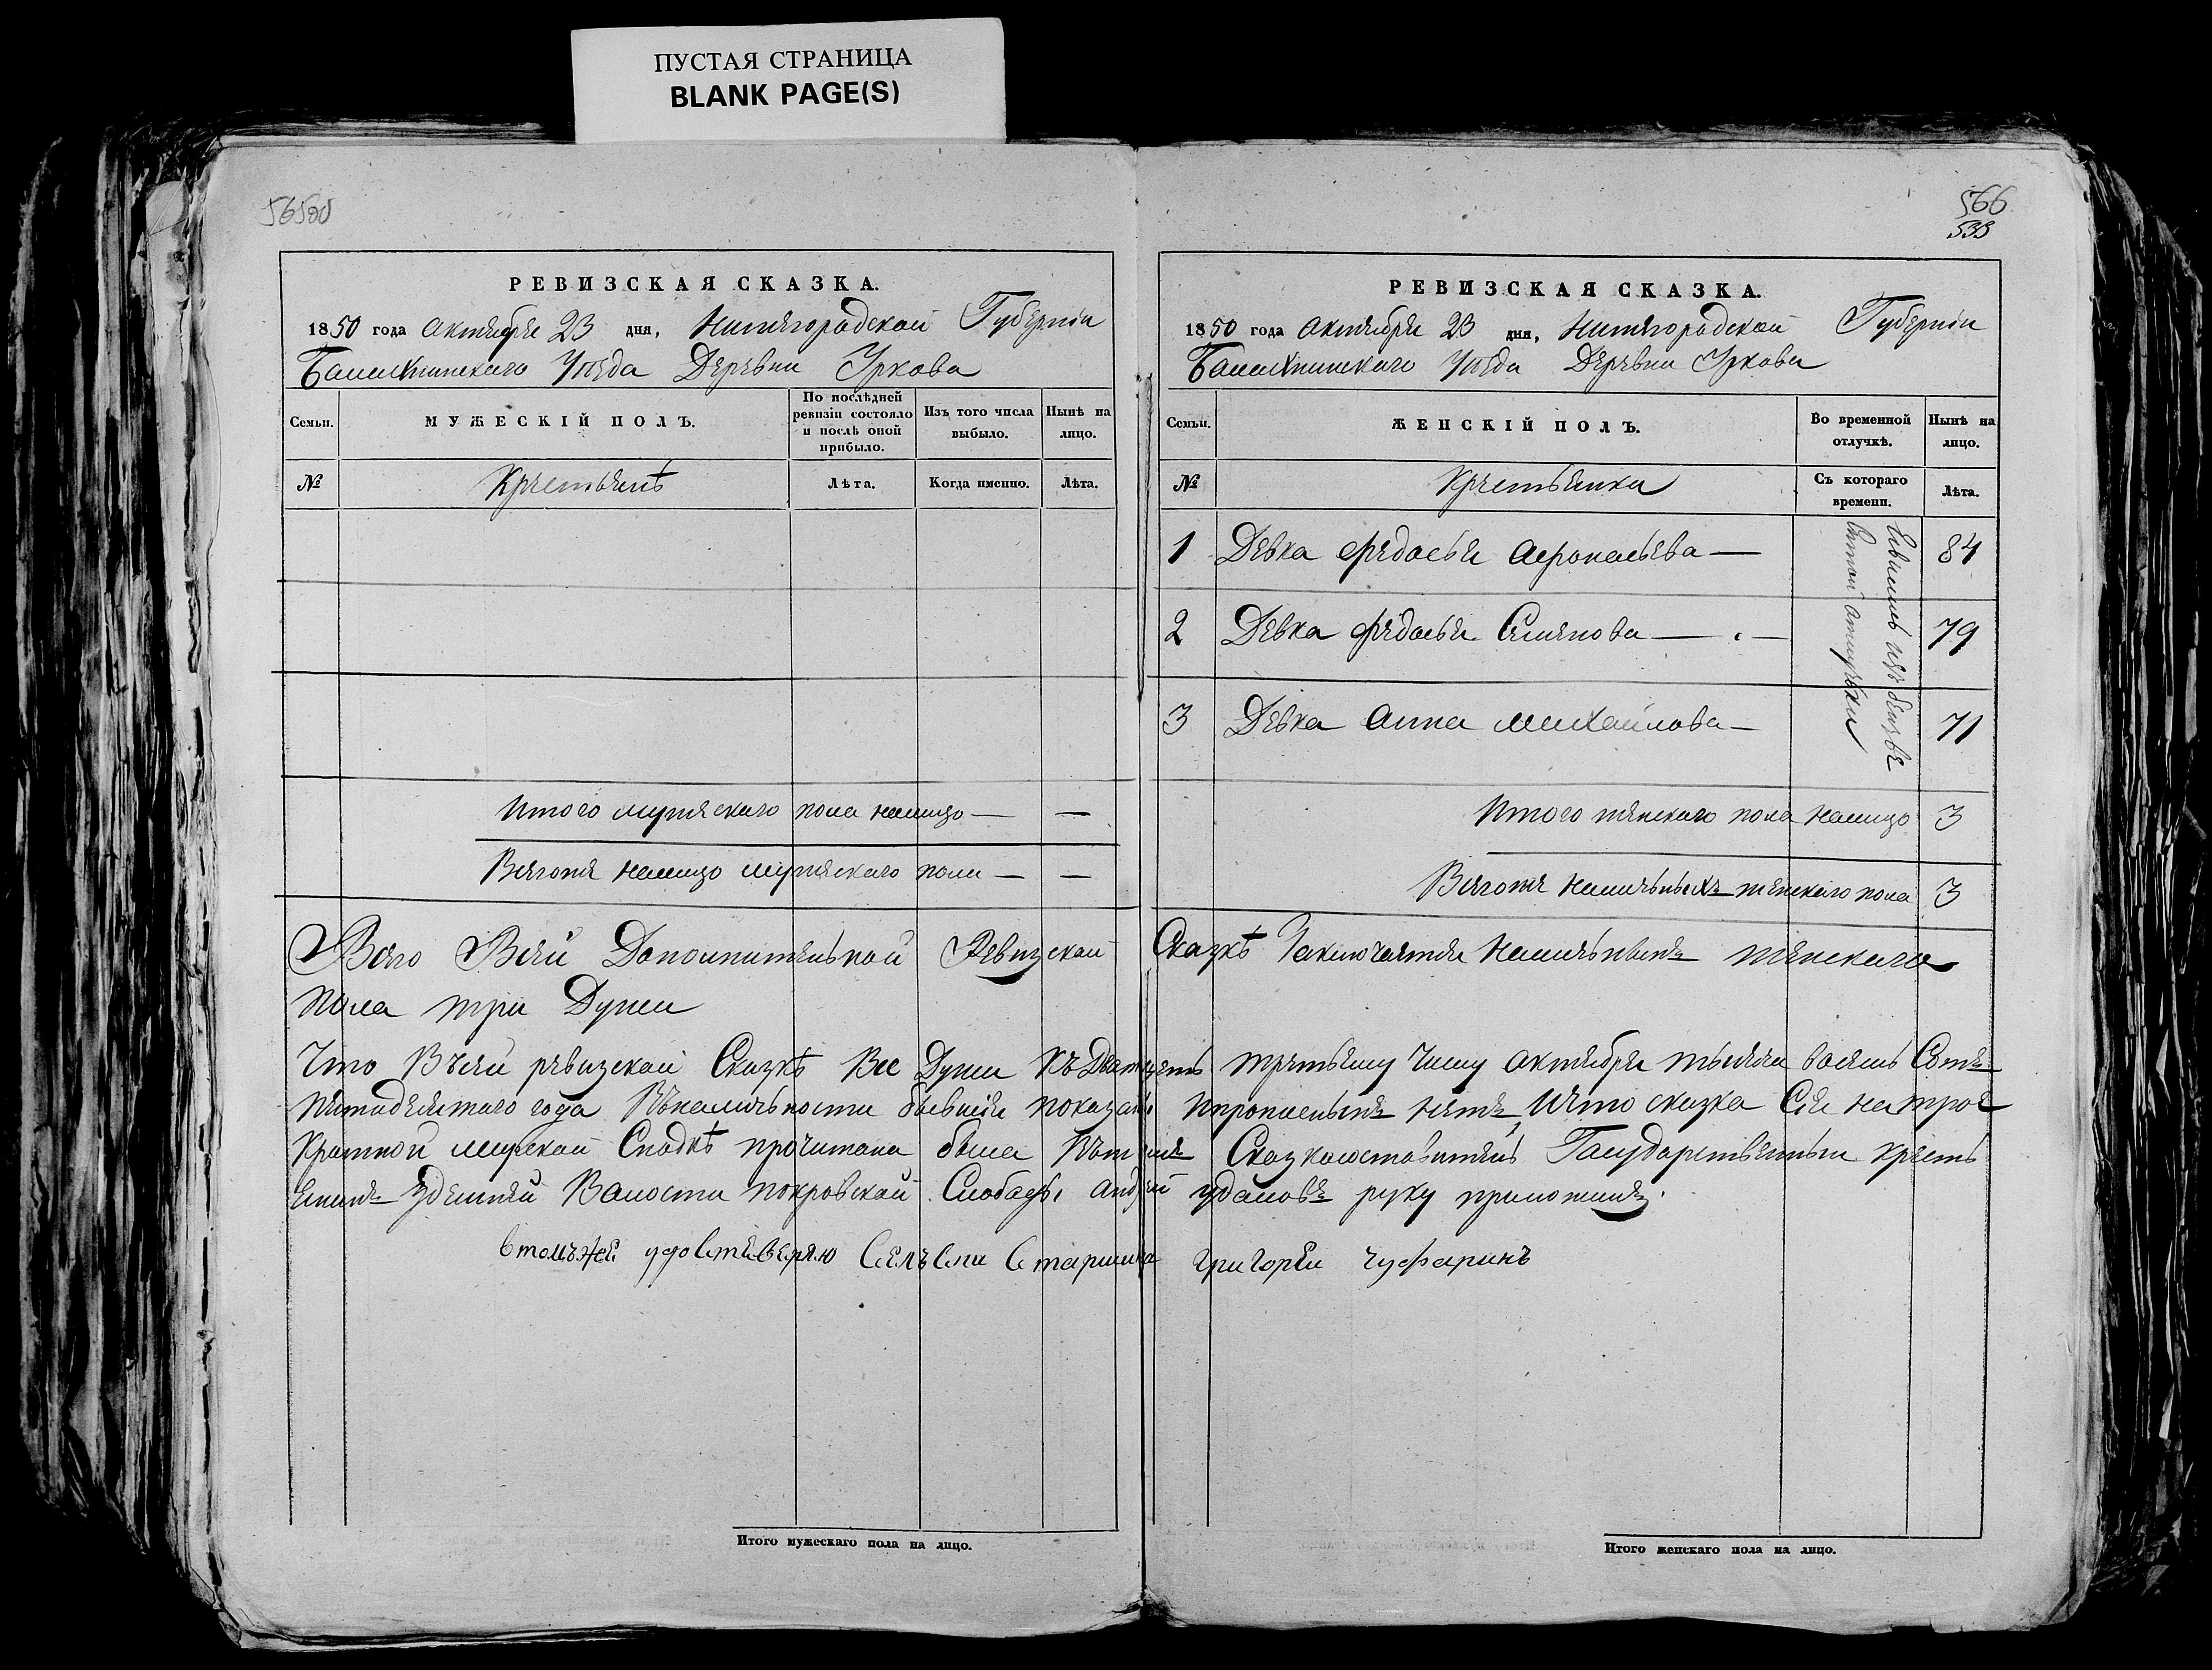 ПУСТАЯ СТРАНИЦА
BLANK PAGE(S)
565об
РЕВИЗСКАЯ СКАЗКА.
1850 года октября 23 дня, Нижегородской Губернии
Балахнинскаго Уезда Деревни Юркова
Семьи.
МУЖЕСКІЙ ПОЛЪ.
По послѣдней ревизіи состояло и послѣ оной прибыло.
Изъ того числа выбыло.
Нынѣ на лицо.
№
Крестьянѣ
Лѣта.
Когда именно.
Лѣта.
Итого мужескаго пола налицо — —
Всягоже налицо мужескаго пола — —
566
533
РЕВИЗСКАЯ СКАЗКА.
1850 года октября 23 дня, Нижегородской Губернии
Балахнинскаго Уезда Деревни Юркова
Семьи.
ЖЕНСКІЙ ПОЛЪ.
Во временной отлучкѣ.
Нынѣ на лицо.
№
Крестьянки
Съ котораго времени.
Лѣта.
1 Девка Федосья — 84
2 Девка Федосья Семенова — 79
3 Девка Анна Михайлова — 71
Итого женскаго пола налицо 3
Всягоже наличьныхъ женскаго пола 3
Всего Всей Дополнительной Ревизской Сказкѣ Заключается Наличьныхъ женскаго
пола три Души
Что Въсей ревизской Сказкѣ Все Души Къ Двацеть третьему Числу октября тысяча восемь Сотъ
пятидесятаго года Въналичьности бывшие показаны ипрописныхъ нетъ, Ичто сказка Сия на трое
Кратной мирской Сходкѣ прочитана была Втомъ Сказкосоставитель Государственный кресть
янинъ здешней Волости покровской Слободы андрей удаловъ руку приложилъ.
втомъжеи удоставеряю Селъски Старшина григореи чуфаринъ
Итого мужескаго пола на лицо.
Итого женскаго пола на лицо.